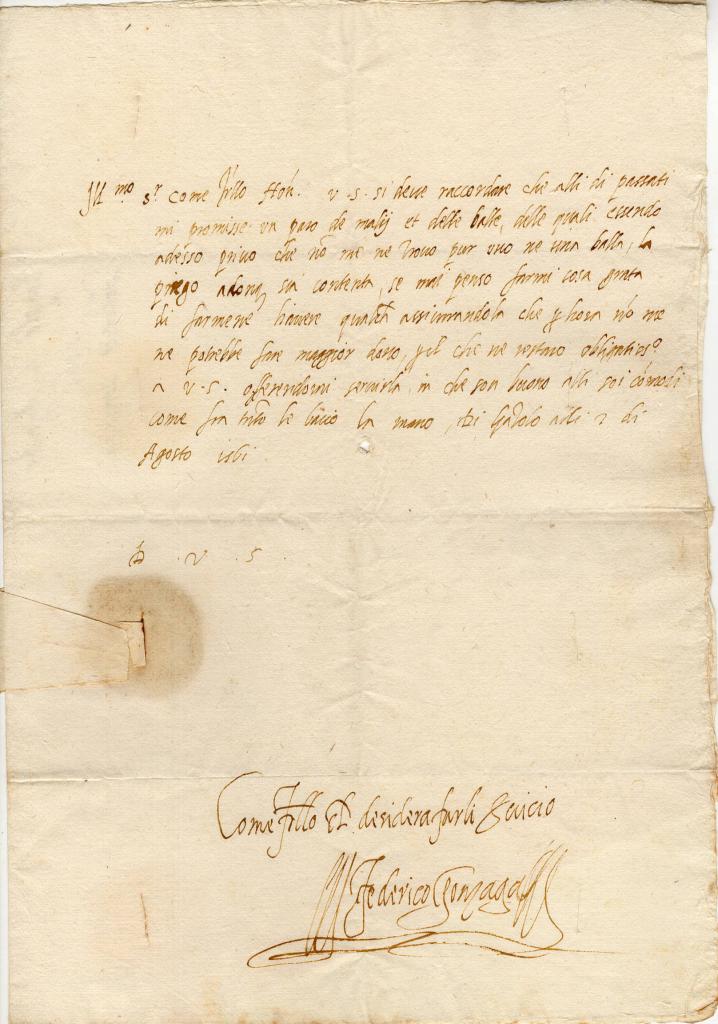 Ill.mo S.r come f'rllo Hon. v. s. si deve raccordare che alli di passati
mi promisse un paro de malij et delle balle, delle quali essendo
adesso privo che nō me ne trovo pur uno ne una balla, la
priego adonq sia contenta, se mai penso farmi cosa grata
di farmene havere qualch assicurandola che p hora nō me
ne potrebbe fare maggior dono, che ne restarò obligatiss.o
a v. s. offerendomi servirla in che son buono alli soi cōmodi
come fra le bascio la mano, Di alli 2 di
Agosto 1561
D. v. s.
Come f'rllo desidera farli Servicio
Federico Gonzaga